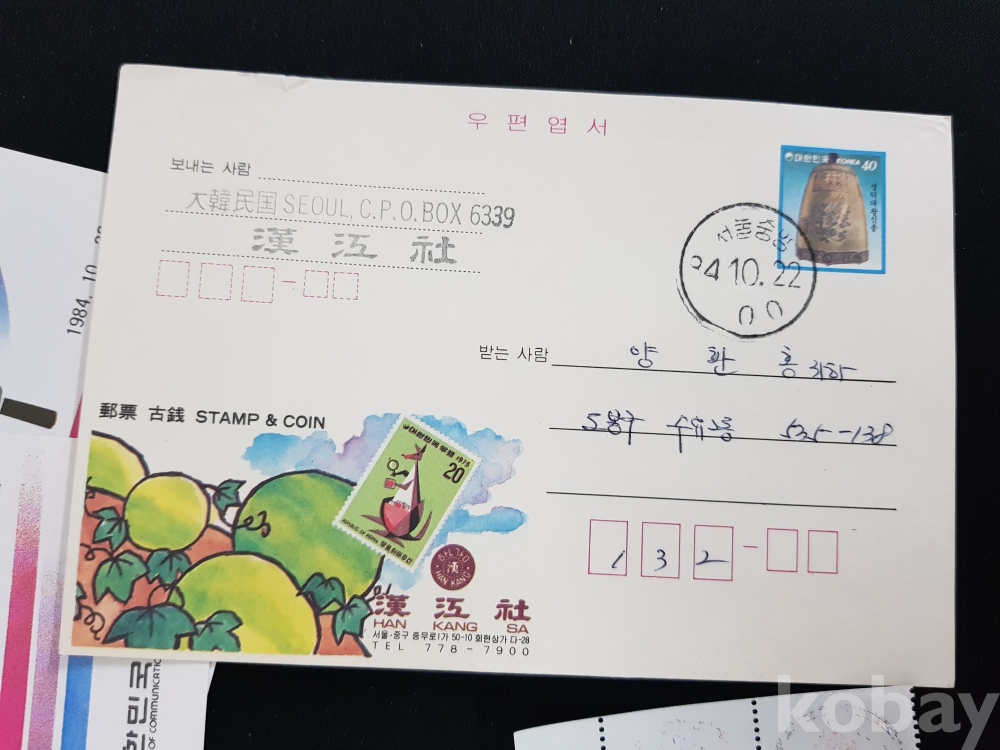 우편엽서
대한민국 KOREA 40
성덕대왕신종
보내는 사람
大韓民国 SEOUL, C.P.O. BOX 6339
漢江社
서울중앙
84.10.22
00
받는 사람 양 환 홍 귀하
도봉구 수유2동 535-138
132
郵票 古銭 STAMP & COIN
대한민국우표 1976
20
REPUBLIC OF KOREA
한강
漢
HAN KANG
漢江社
HAN KANG SA
서울·중구 충무로1가 50-10 회현상가 다-28
TEL 778-7900
1984. 10. 22
한민국
OF COMMUNICATION
kobay